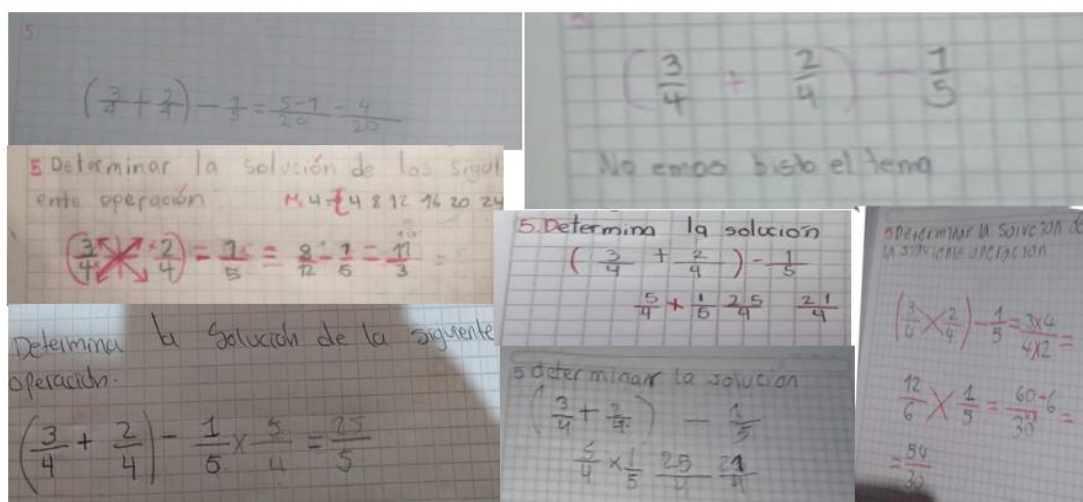 5
(3/4 + 2/4) - 1/5 = 5-1/20 = 4/20
(3/4 + 2/4) - 1/5
No emos bisto el tema
5 Determinar la solución de las sigui
ente operación M,4={4 8 12 16 20 24
(3/4 × 2/4) = 1/5 = 8/12 - 1/5 = 11/3 =
5. Determina la solución
(3/4 + 2/4) - 1/5
5/4 + 1/5 25/4 21/4
5 Determinar la solución de
la siguiente operacion
(3/4 X 2/4) - 1/5 = 3x4/4x2 =
12/6 X 1/5 = 60-6/30 =
= 54/30
Determina la Solución de la siguiente
operación.
(3/4 + 2/4) - 1/5 x 5/4 = 25/5
5 determinar la solucion
(3/4 + 2/4) - 1/5
5/4 x 1/5 25/4 21/4